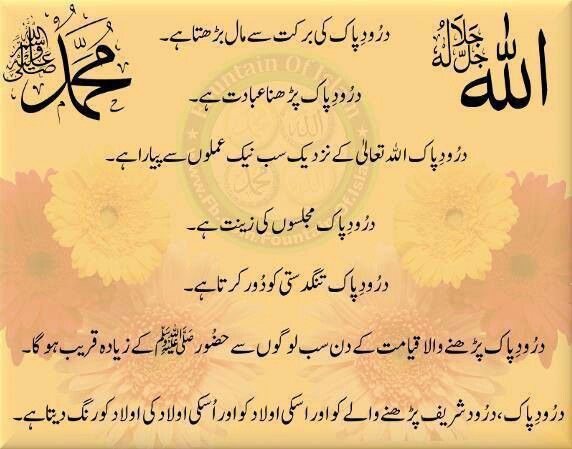 اللہ جل جلالہ
محمد صلی اللہ علیہ وسلم
درُودِ پاک کی برکت سے مال بڑھتا ہے۔
درُودِ پاک پڑھنا عبادت ہے۔
درُودِ پاک اللہ تعالیٰ کے نزدیک سب نیک عملوں سے پیارا ہے۔
درُودِ پاک مجلسوں کی زینت ہے۔
درُودِ پاک تنگدستی کو دُور کرتا ہے۔
درُودِ پاک پڑھنے والا قیامت کے دن سب لوگوں سے حضُور ﷺ کے زیادہ قریب ہو گا۔
درُودِ پاک، درُود شریف پڑھنے والے کو اور اسکی اولاد کو اور اُسکی اولاد کی اولاد کو رنگ دیتا ہے۔
Fountain Of Islam